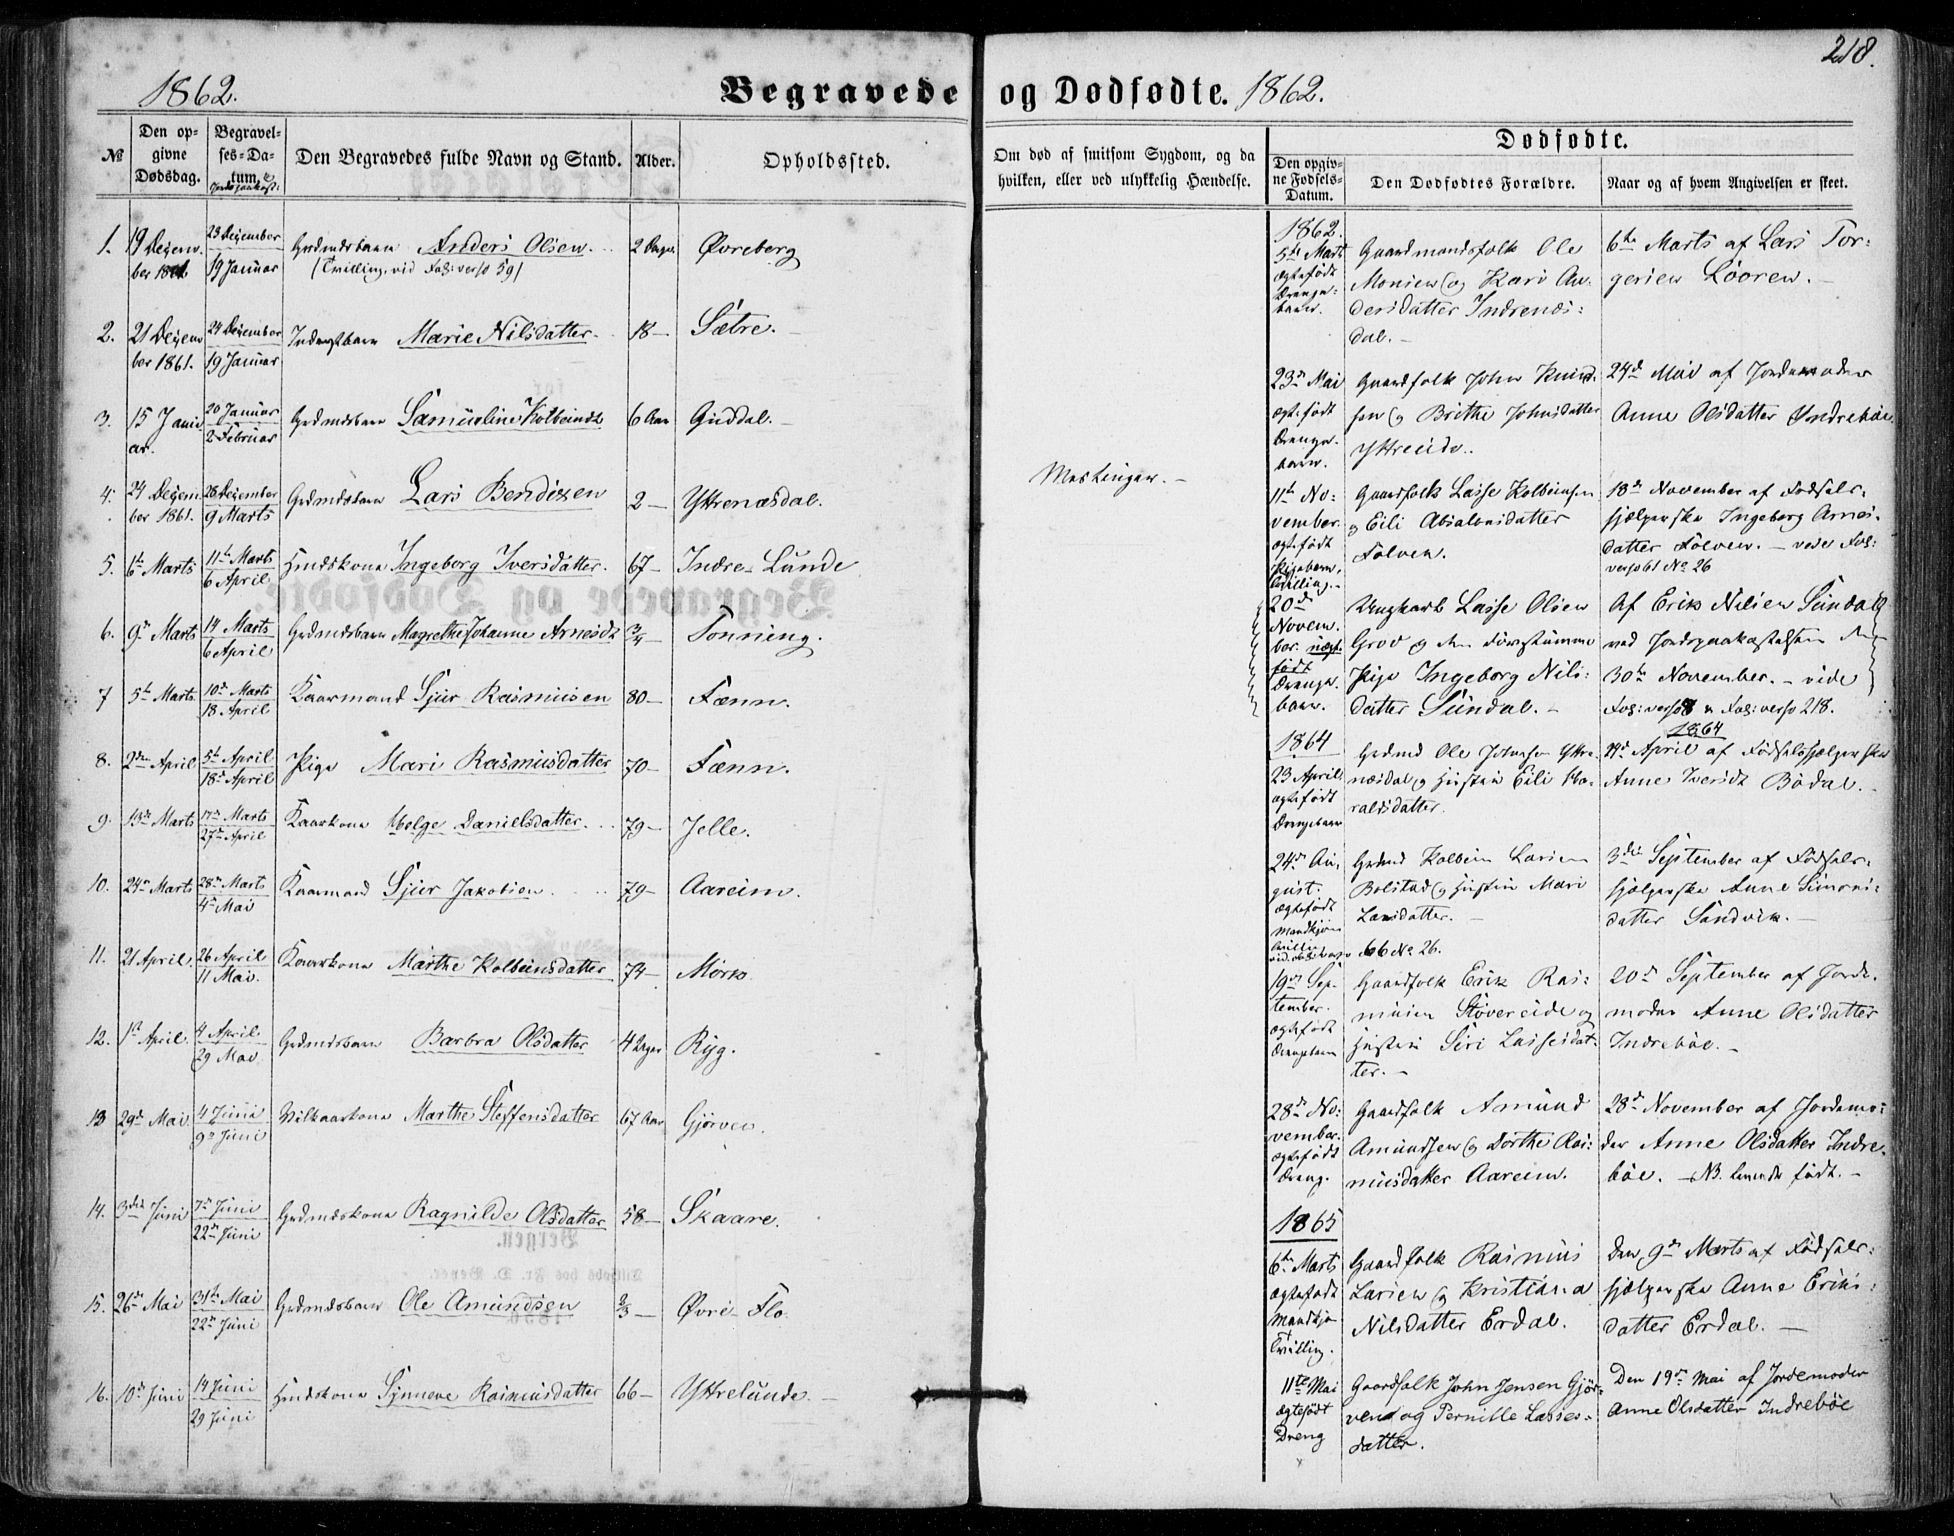 218.
1862.
Begravede og Dødfødte. 1862.
№
Den opgivne Dødsdag.
Begravelses-Datum.
Den Begravedes fulde Navn og Stand.
Alder.
Opholdssted.
Om død af smitsom Sygdom, og da hvilken, eller ved ulykkelig Hændelse.
Dødfødte.
Den opgivne Fødsels-Datum.
Den Dødfødtes Forældre.
Naar og af hvem Angivelsen er skeet.
1. 19 Dezember 1861. 23 Dezember 19 Januar Grdmdsbarn Anders Olsen. 2 Dage Øvreberg
(Tvilling, vid Fol: verso 59)
2. 21 Dezember 1861. 24 Dezember 19 Januar Inderstbarn Marie Nilsdatter. 18 — Sætre. —
3. 15 Januar. 20 Januar 2 Februar Grdmdsbarn Samueline Kolbeinsdt 6 Aar Guddal. —
4. 24 Dezember 1861. 28 Dezember 9 Marts Grdmdsbarn Lars Bendixen 2 — Yttrenæsdal. Meslinger. —
5. 6te Marts 11te Marts 6 April Huudskona Ingeborg Iversdatter. 67 — Indre-Lunde
6. 9de Marts 14 Marts 6 April Grdmdsbarn Magrethe Johanne Arnesdt 3/4 — Tonning.
7 5te Marts 10de Marts 18 April Kaarmand Sjur Rasmusen 80 — Fænn.
8. 2den April 5te April 18de April Pige Mari Rasmusdatter 70 — Fænn.
9. 13de Marts 17de Marts 27de April Kaarkona Helge Danielsdatter. 79 — Jelle.
10. 24de Marts 28de Marts 4de Mai Kaarmand Sjur Jakobsen 79 — Aareim.
11. 21 April. 26 April 11 Mai. Kaarkona Marthe Kolbeinsdatter 74 — Mork.
12. 1ste April. 4 April 29 Mai Grdmdsbarn Barbra Olsdatter 4 Dage Ryg.
13 29de Mai 4 Junii 9de Juni Vilkaarkona Marthe Steffensdatter 67 Aar Gjörven.
14. 3die Juni 7de Juni 22de Juni Grdmdskona Ragnilde Olsdatter 58 — Skaare.
15. 26de Mai 31te Mai 22de Juni Grdmdsbarn Ole Amundsen 2/3 — Øvre-Flo.
16. 10de Juni 14 Juni 29 Juni Huudskona Synneve Rasmusdatter 66 — Yttrelunde. —
1862.
5te Marts ægtefødt Drengebarn. Gaardmandsfolk Ole Monsen og Kari Andersdatter Indrenæsdal. — 6te Marts af Lars Torgersen Looren. —
23de Mai ægtefødt Drengebarn. Gaardfolk John Knudsen og Brithe Johnsdatter Yttreeide. 24de Mai af Jordemoder Anne Olsdatter Yndrebøe.
11te November. ægtefødt Pigebarn, Tvilling. — Gaardfolk Lasse Kolbeinsen og Eili Absalonsdatter Folven. 18de November af Fødselshjælperske Ingeborg Arnesdatter Folven. — vide Fol: verso 61 No 26
20de November. uægtefødt Drengebarn. Ungkarl Lasse Olsen Grov og den Forstumme Pige Ingeborg Nilsdatter Sundal. — Af Erik Nilsen Sundal ved Jordpaakastelsen den 30te November. — vide Fol: verso 218.
1864
23 April ægtefødt Drengebarn Grdmd Ole Johnsen Yttrenæsdal og Hustru Eili Haraldsdatter. 1864 29de April af Fødselshjælperske Anne Iversdt Bødal.
24de August. ægtefødt Mandkjøn Grdmd Kolbein Larsen Bolstad og Hustru Mari Larsdatter. — 66 No 26. 3die September af Fødselshjælperske Anne Simonsdatter Sandvik. —
19de September. ægtefødt Drengebarn Gaardfolk Erik Rasmusen Støvereide og Hustru Siri Lassesdatter. — 20de September af Jordemoder Anne Olsdatter Indrebøe. —
28de November. ægtefødt Dreng. Gaardfolk Amund Amundsen og Dorthe Rasmusdatter Aareim. 28de November af Jordemoder Anne Olsdatter Indrebøe. — NB. levende født. —
1865
6te Marts ægtefødt Mandkjøn Tvilling. Gaardfolk Rasmus Larsen og Kristiana Nilsdatter Erdal. Den 9de Marts af Fødselshjælperske Anne Eriksdatter Erdal. —
11te Mai ægtefødt Dreng Gaardfolk John Jensen Gjörven og Pernille Lassesdatter. Den 19de Mai af Jordemoder Anne Olsdatter Indrebøe